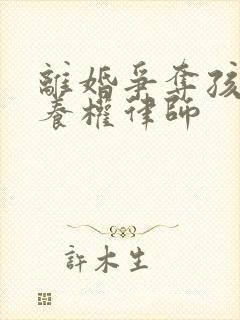 離婚爭奪孩
養權律師
許木生